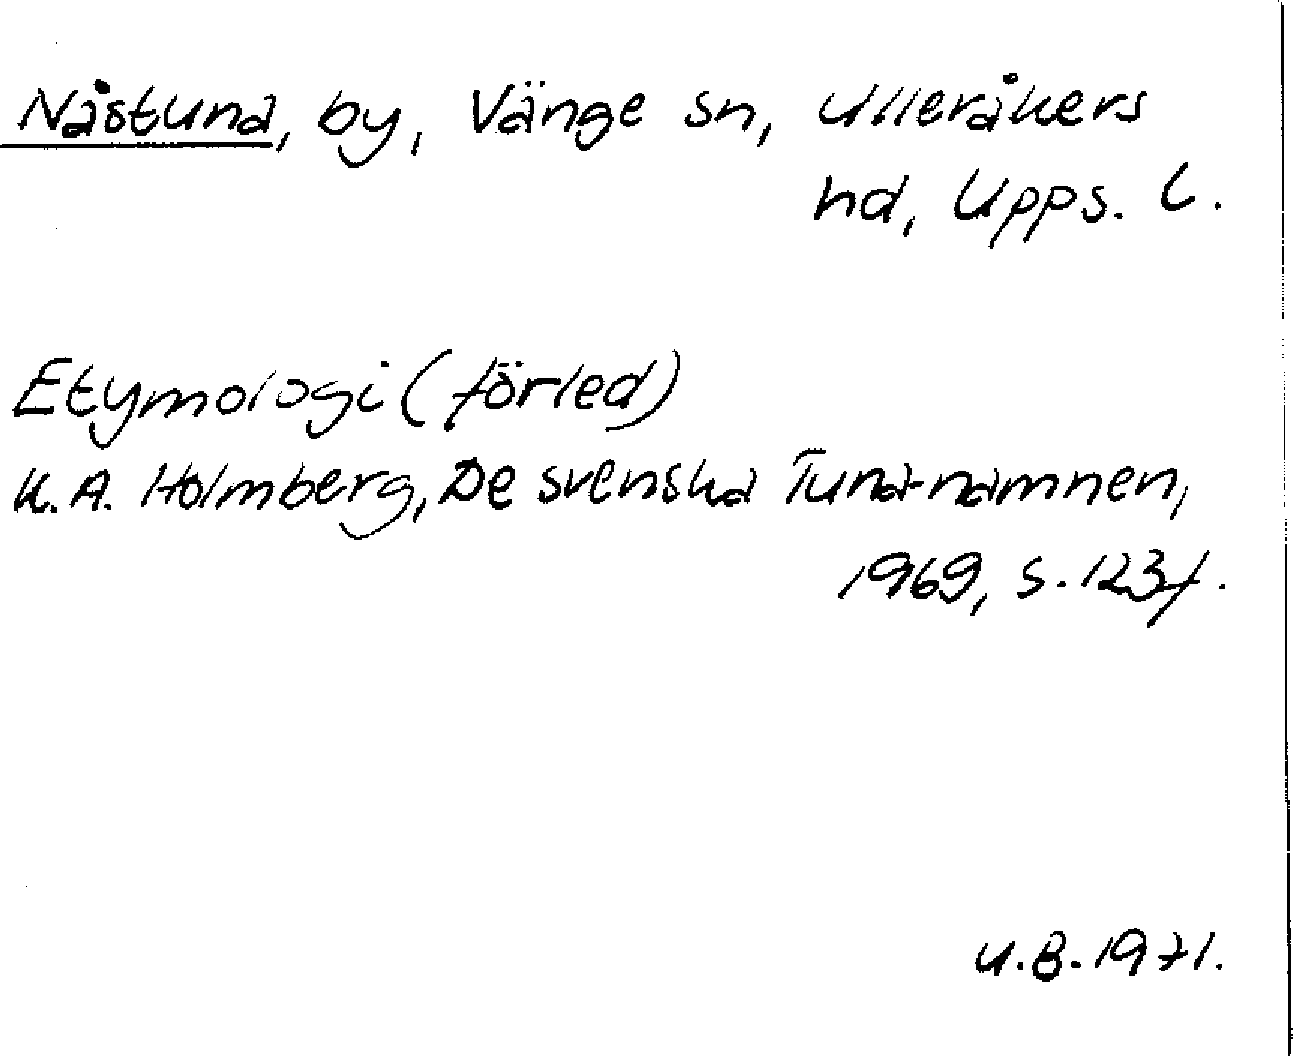 Nåstuna, by, Vänge sn, Ulleråkers
hd, Upps. L.
Etymologi (förled)
K.A. Holmberg, De svenska Tuna-namnen,
1969, s. 123f.
U.B. 1971.